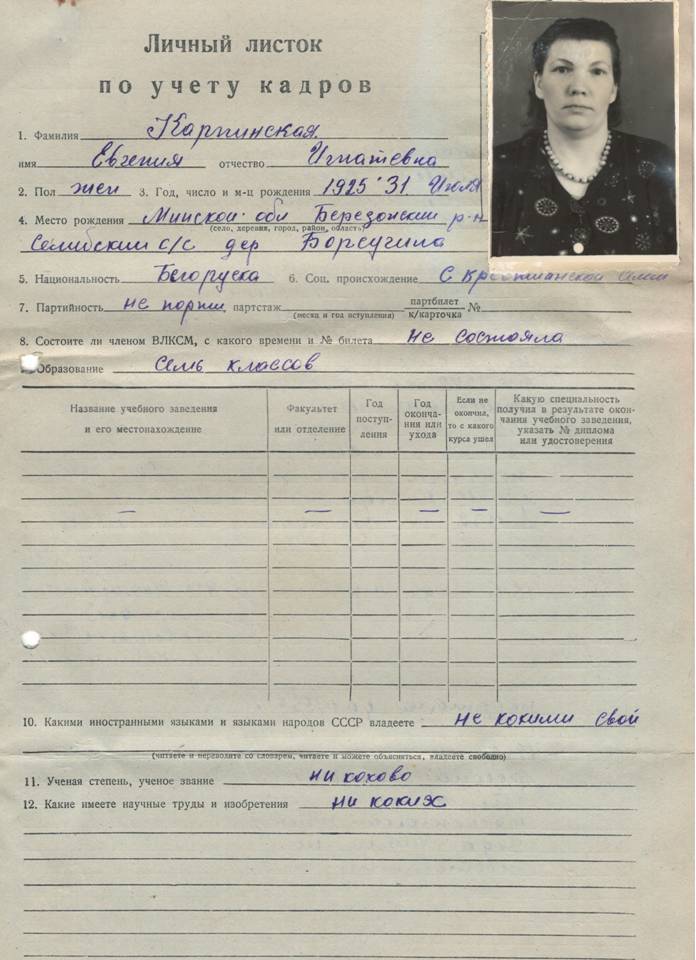 Личный листок
по учету кадров
1. Фамилия Карпинская
имя Евгения отчество Игнатевна
2. Пол жен 3. Год, число и м-ц рождения 1925 31 Июля
4. Место рождения Минской обл Березонский р-н
(село, деревня, город, район, область)
Селибский с/с дер Борсучина
5. Национальность Белоруска 6. Соц. происхождение С Крестианской
7. Партийность не порти партстаж партбилет к/карточка №
(месяц и год вступления)
8. Состоите ли членом ВЛКСМ, с какого времени и № билета Не состояла
Образование Семь классов
Название учебного заведения и его местонахождение
Факультет или отделение
Год поступления
Год окончания или ухода
Если не окончил, то с какого курса ушел
Какую специальность получил в результате окончания учебного заведения, указать № диплома или удостоверения
— — — — —
10. Какими иностранными языками и языками народов СССР владеете не кокими свой
(читаете и переводите со словарем, читаете и можете объясняться, владеете свободно)
11. Ученая степень, ученое звание ни коково
12. Какие имеете научные труды и изобретения ни коких